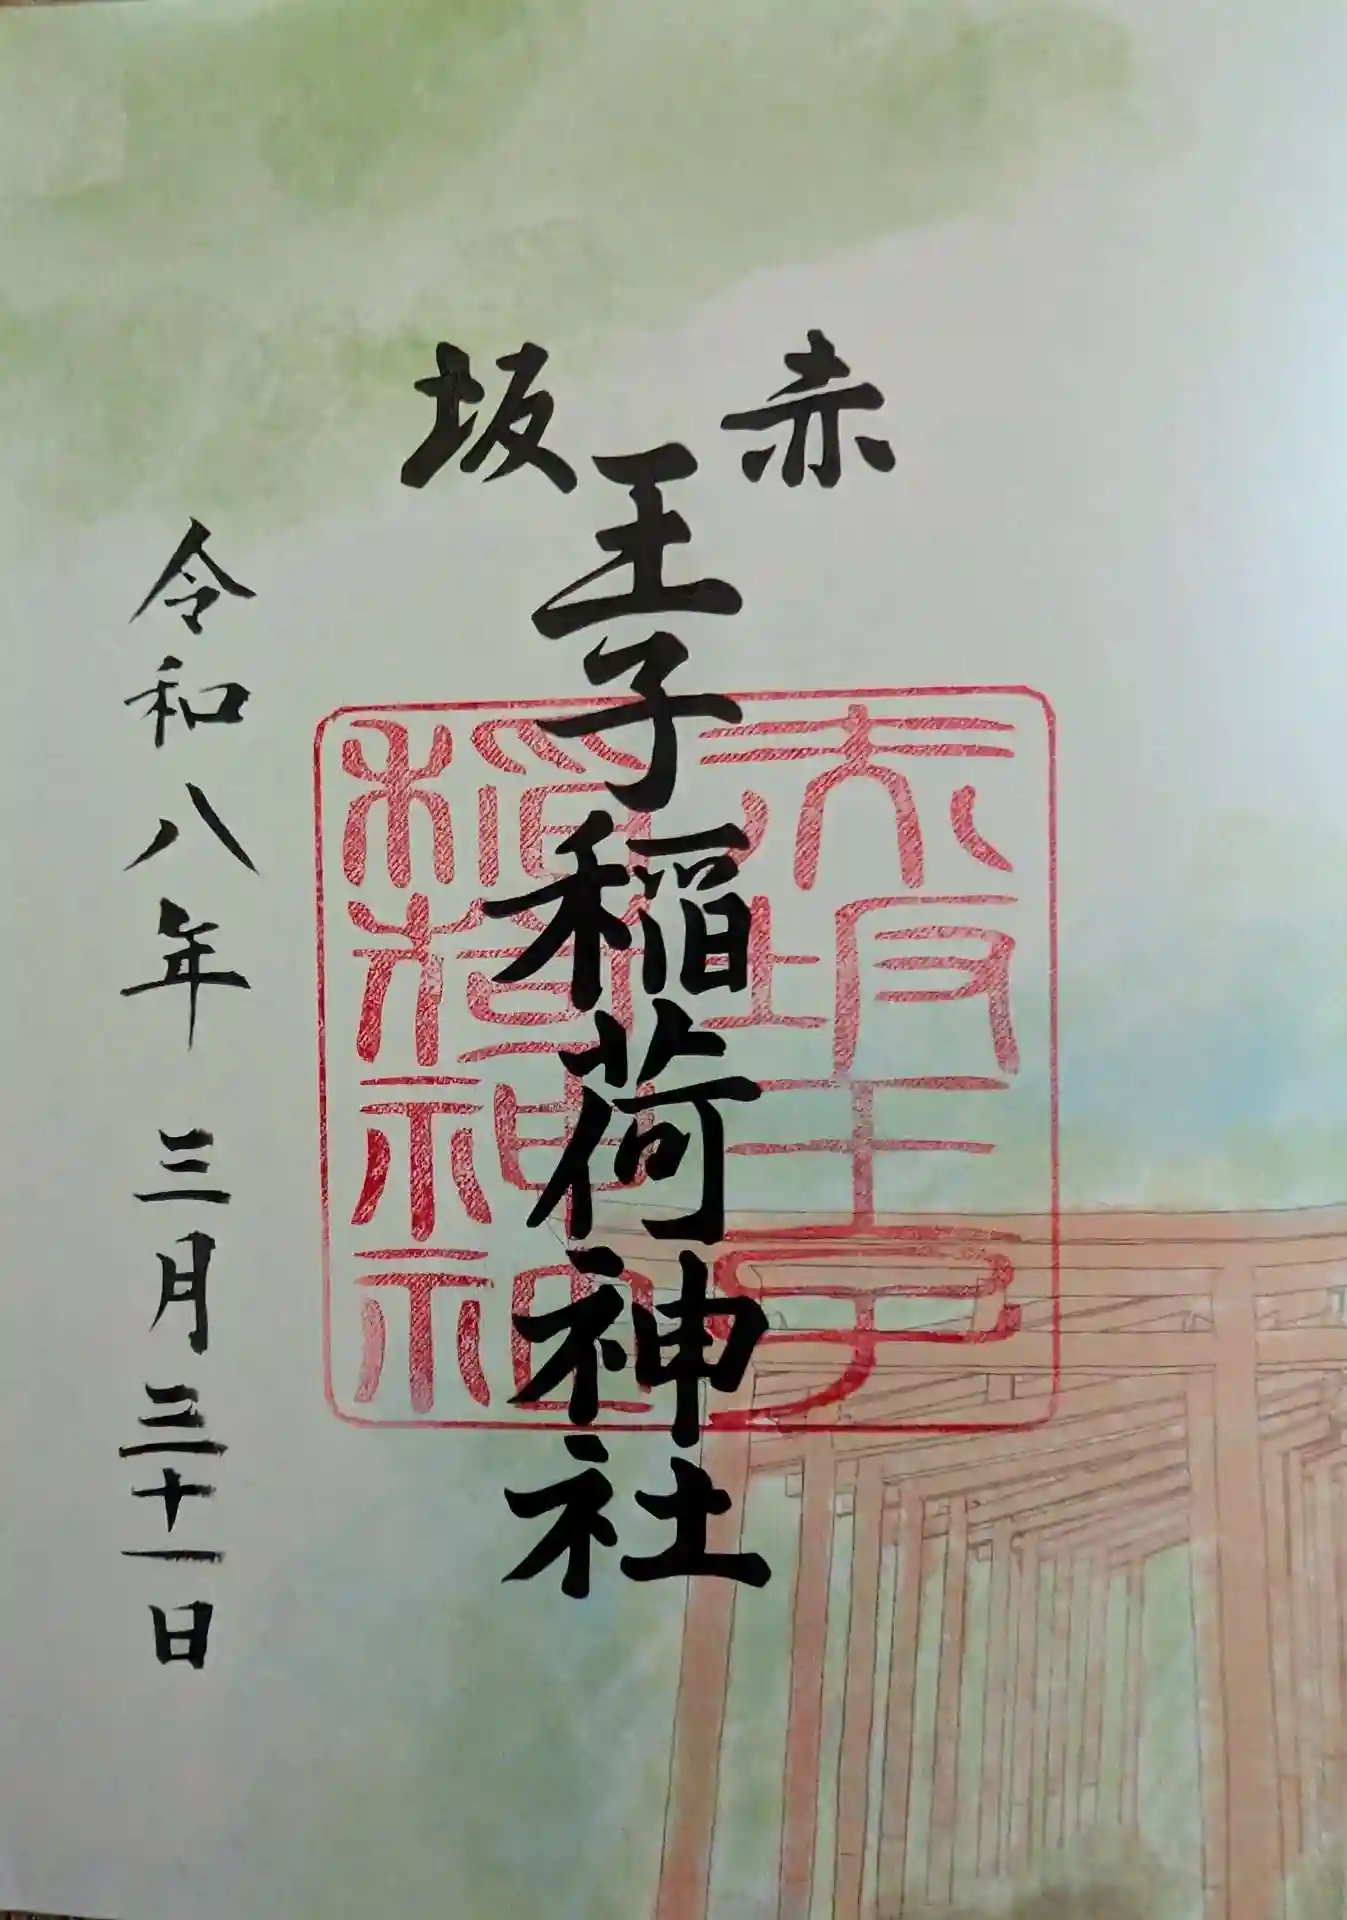 赤坂
王子稲荷神社
赤坂王子
稲荷神社
令和八年 三月 三十一日